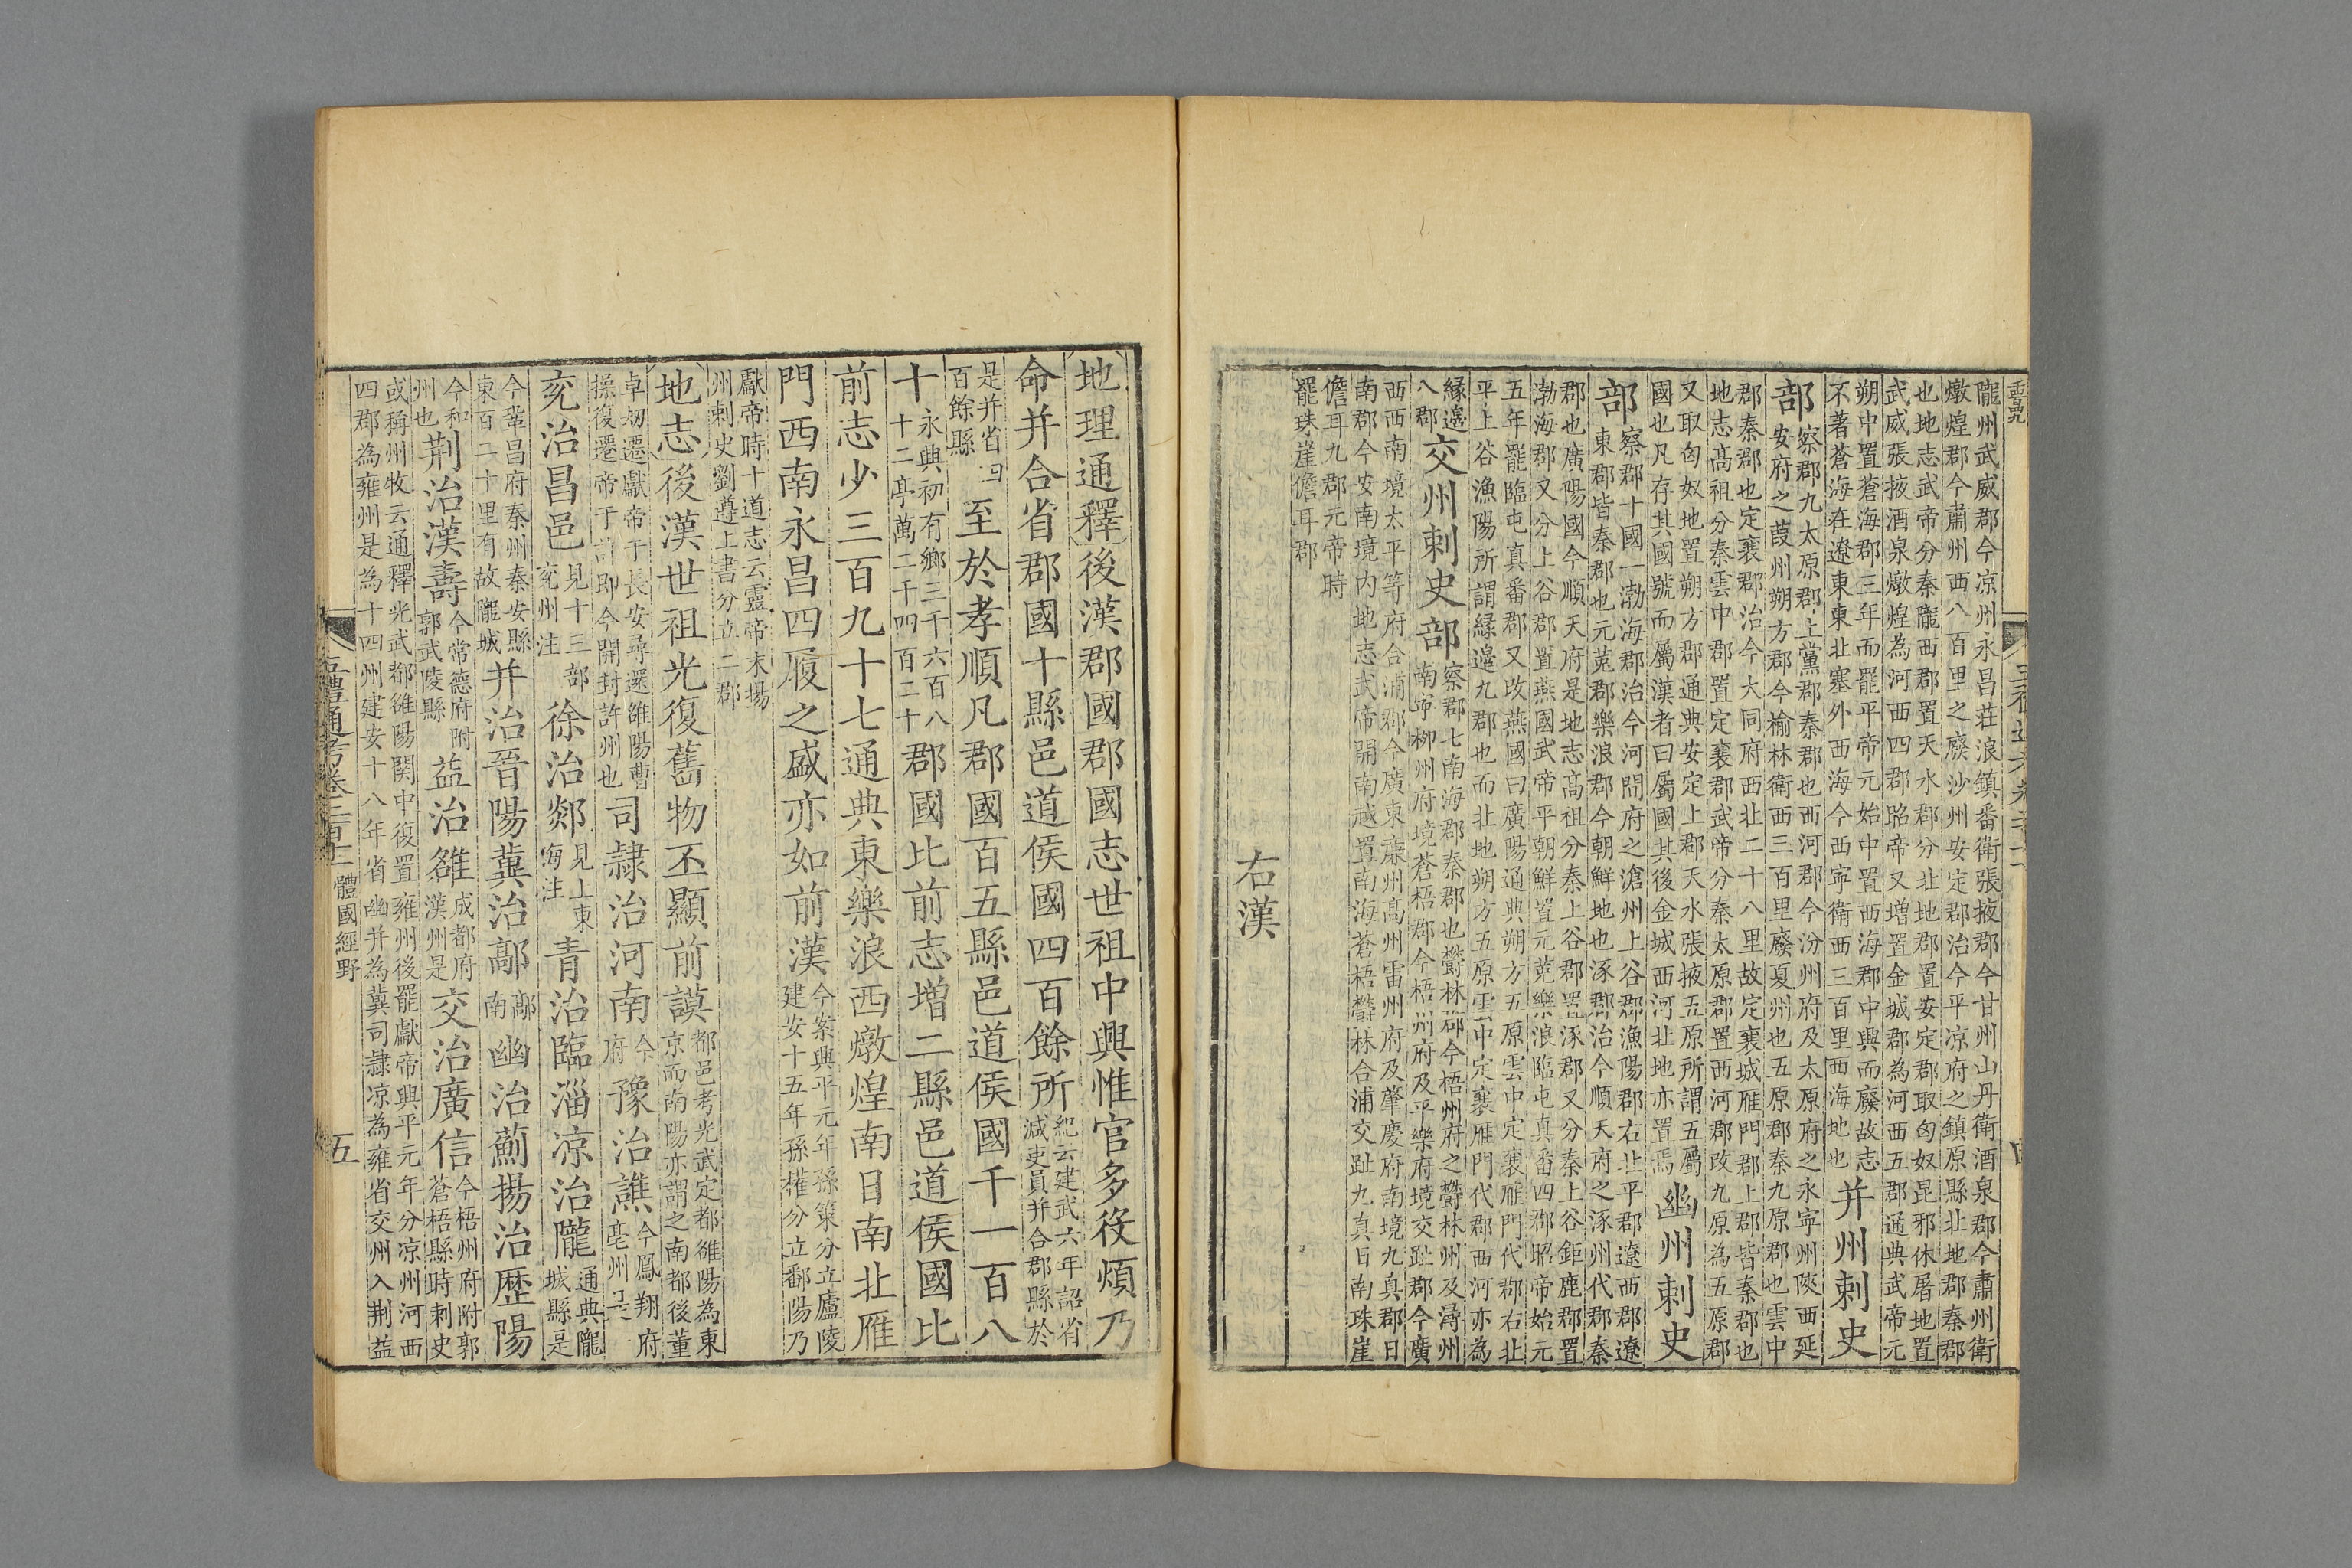 隴州武威郡今凉州永昌莊浪鎮番衛張掖郡今甘州山丹衛酒泉郡今肅州衛
燉煌郡今肅州西八百里之廢沙州安定郡治今平凉府之鎮原縣北地郡秦郡
也地志武帝分秦隴西郡置天水郡分北地郡置安定郡取匈奴昆邪休屠地置
武威張掖酒泉燉煌為河西四郡昭帝又增置金城郡為河西五郡通典武帝元
朔中置蒼海郡三年而罷平帝元始中置西海郡中興而廢故志
不著蒼海在遼東東北塞外西海今西寧衛西三百里西海地也
并州刺史
部
察郡九太原郡上黨郡秦郡也西河郡今汾州府及太原府之永寧州陝西延
安府之葭州朔方郡今榆林衛西三百里廢夏州也五原郡秦九原郡也雲中
郡秦郡也定襄郡治今大同府西北二十八里故定襄城雁門郡上郡皆秦郡也
地志高祖分秦雲中郡置定襄郡武帝分秦太原郡置西河郡改九原為五原郡
又取匈奴地置朔方郡通典安定上郡天水張掖五原所謂五屬
國也凡存其國號而屬漢者曰屬國其後金城西河北地亦置焉
幽州刺史
部
察郡十國一渤海郡治今河間府之滄州上谷郡漁陽郡右北平郡遼西郡遼
東郡皆秦郡也元菟郡樂浪郡今朝鮮地也涿郡治今順天府之涿州代郡秦
郡也廣陽國今順天府是地志高祖分秦上谷郡置涿郡又分秦上谷鉅鹿郡置
渤海郡又分上谷郡置燕國武帝平朝鮮置元菟樂浪臨屯真番四郡昭帝始元
五年罷臨屯真番郡又改燕國曰廣陽通典朔方五原雲中定襄雁門代郡右北
平上谷漁陽所謂緣邊九郡也而北地朔方五原雲中定襄雁門代郡西河亦為
緣邊
八郡
交州刺史部
察郡七南海郡秦郡也鬱林郡今梧州府之鬱林州及潯州
南寧柳州府境蒼梧郡今梧州府及平樂府境交趾郡今廣
西西南境太平等府合浦郡今廣東廉州高州雷州府及肇慶府南境九真郡日
南郡今安南境内地志武帝開南越置南海蒼梧鬱林合浦交趾九真日南珠崖
儋耳九郡元帝時
罷珠崖儋耳郡
右漢
地理通釋後漢郡國郡國志世祖中興惟官多役煩乃
命并合省郡國十縣邑道侯國四百餘所
紀云建武六年詔省
減吏員并合郡縣於
是并省四
百餘縣
至於孝順凡郡國百五縣邑道侯國千一百八
十
永興初有鄉三千六百八
十二亭萬二千四百二十
郡國比前志增二縣邑道侯國比
前志少三百九十七通典東樂浪西燉煌南日南北雁
門西南永昌四履之盛亦如前漢
今案興平元年孫策分立廬陵
建安十五年孫權分立鄱陽乃
獻帝時十道志云靈帝末揚
州刺史劉遵上書分立二郡
地志後漢世祖光復舊物丕顯前謨
都邑考光武定都雒陽為東
京而南陽亦謂之南都後董
卓刼遷獻帝于長安尋還雒陽曹
操復遷帝于許即今開封許州也
司隷治河南
今
府
豫治譙
今鳳翔府
亳州
兖治昌邑
見十三部
兖州注
徐治郯
見山東
海注
青治臨淄凉治隴
通典隴
城縣是
今鞏昌府秦州秦安縣
東百二十里有故隴城
并治晉陽冀治鄗
鄗
南
幽治薊揚治歷陽
今和
州也
荆治漢壽
今常德府附
郭武陵縣
益治雒
成都府
漢州是
交治廣信
今梧州府附郭
蒼梧縣時刺史
或稱州牧云通釋光武都雒陽関中復置雍州後罷獻帝興平元年分凉州河西
四郡為雍州是為十四州建安十八年省幽并為冀司隷凉為雍省交州入荆益
五禮通考卷二百十一
體國經野
五